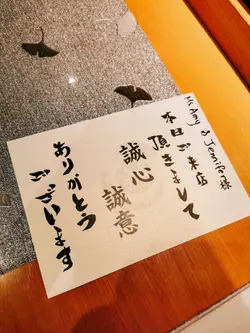 Ms Amy & Jennifer様
本日ご来店
頂きまして
誠心
誠意
ありがとう
ございます